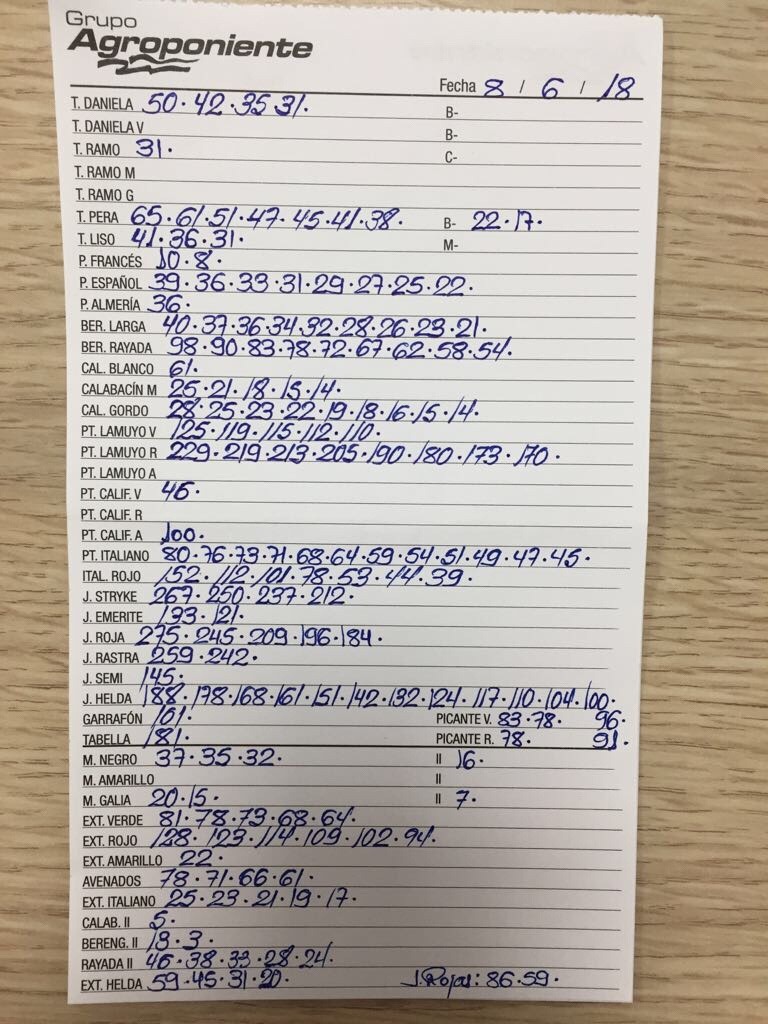 Grupo
Agroponiente
Fecha 8 / 6 / 18
T. DANIELA 50.42.35 31. B-
T. DANELA V B-
T. RAMO 31. C-
T. RAMO M
T. RAMO G
T. PERA 65.61.51.47.45.41.38. B- 22.17.
T. LISO 41.36.31. M-
P. FRANCÉS 10.8.
P. ESPAÑOL 39.36.33.31.29.27.25.22.
P. ALMERÍA 36.
BER. LARGA 40.37.36.34.32.28.26.23.21.
BER. RAYADA 98.90.83.78.72.67.62.58.54.
CAL. BLANCO 61.
CALABACÍN M 25.21.18.15.14.
CAL. GORDO 28.25.23.22.19.18.16.15.14.
PT. LAMUYO V 125.119.115.112.110.
PT. LAMUYO R 229.219.213.205.190.180.173.170.
PT. LAMUYO A
PT. CALIF. V 45.
PT. CALIF. R
PT. CALIF. A 100.
PT. ITALIANO 80.76.73.71.68.64.59.54.51.49.47.45.
ITAL. ROJO 152.112.101.78.53.44.39.
J. STRYKE 267.250.237.212.
J. EMERITE 133.121.
J. ROJA 275.245.209.196.184.
J. RASTRA 259.242.
J. SEMI 145.
J. HELDA 188.178.168.161.151.142.132.124.117.110.104.100.
GARRAFÓN 101. PICANTE V. 83.78. 96.
TABELLA 181. PICANTE R. 78. 91.
M. NEGRO 37.35.32. II 16.
M. AMARILLO II
M. GALIA 20.15. II 7.
EXT. VERDE 81.78.73.68.64.
EXT. ROJO 128.123.114.109.102.94.
EXT. AMARILLO 22.
AVENADOS 78.71.66.61.
EXT. ITALIANO 25.23.21.19.17.
CALAB. II 5.
BERENG. II 13.3.
RAYADA II 45.38.33.28.24.
EXT. HELDA 59.45.31.20. J.Rojas: 86.59.